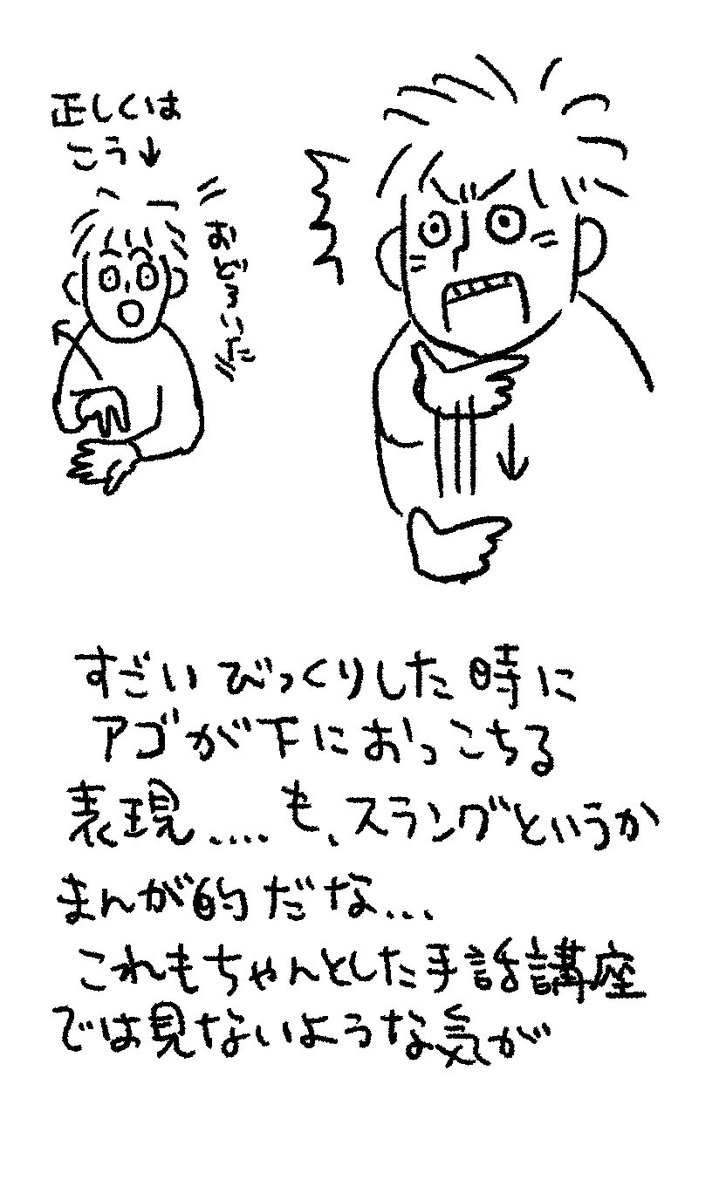 正しくは
こう↓
おどろいた
すごいびっくりした時に
アゴが下におっこちる
表現....も、スラングというか
まんが的だな...
これもちゃんとした手話講座
では見ないような気が